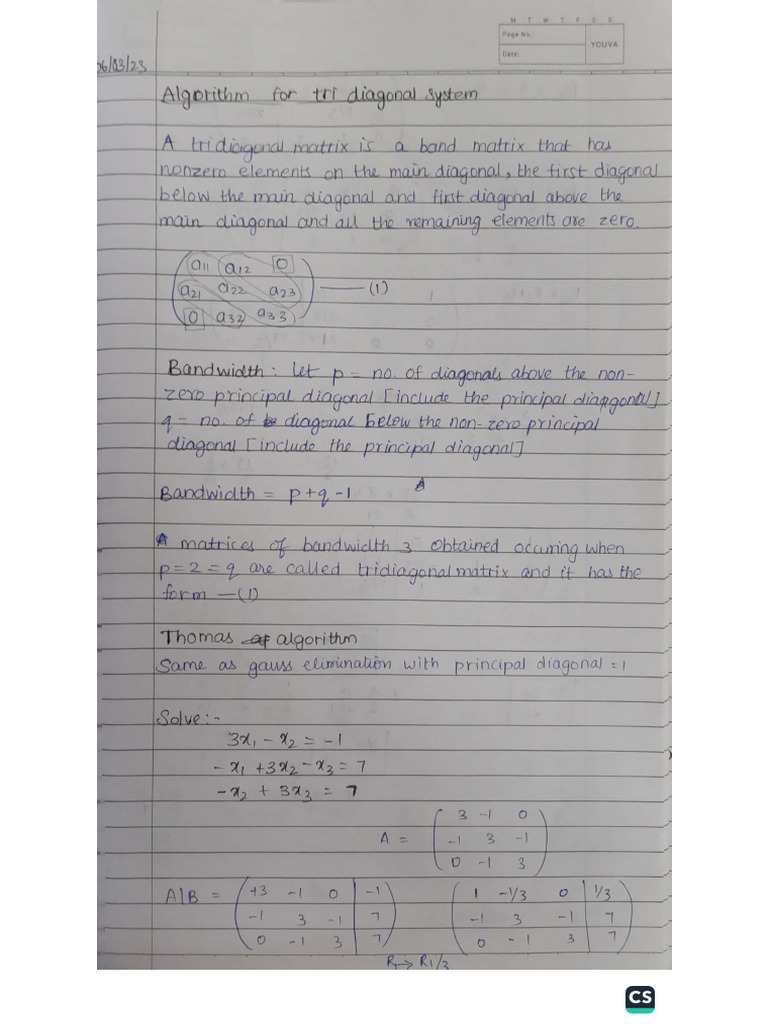 M T W T F S S
Page No.:
Date:
YOUVA
06/03/23
Algorithm for tri diagonal system
A tridiagonal matrix is a band matrix that has
nonzero elements on the main diagonal, the first diagonal
below the main diagonal and first diagonal above the
main diagonal and all the remaining elements are zero.
a11 a12 0
a21 a22 a23 —— (1)
0 a32 a33
Bandwidth : let p = no. of diagonals above the non-
zero principal diagonal [include the principal diagonal]
q = no. of diagonal below the non-zero principal
diagonal [include the principal diagonal]
Bandwidth = p+q-1
A matrices of bandwidth 3 obtained ocuring when
p=2=q are called tridiagonal matrix and it has the
form —(1)
Thomas algorithm
Same as gauss elimination with principal diagonal = 1
Solve:-
3x₁ - x₂ = -1
-x₁ + 3x₂ - x₃ = 7
-x₂ + 3x₃ = 7
A = ( 3 -1 0
-1 3 -1
0 -1 3 )
A|B = ( +3 -1 0 | -1 ) ( 1 -1/3 0 | 1/3 )
( -1 3 -1 | 7 ) ( -1 3 -1 | 7 )
( 0 -1 3 | 7 ) ( 0 -1 3 | 7 )
R₁→ R1/3
CS